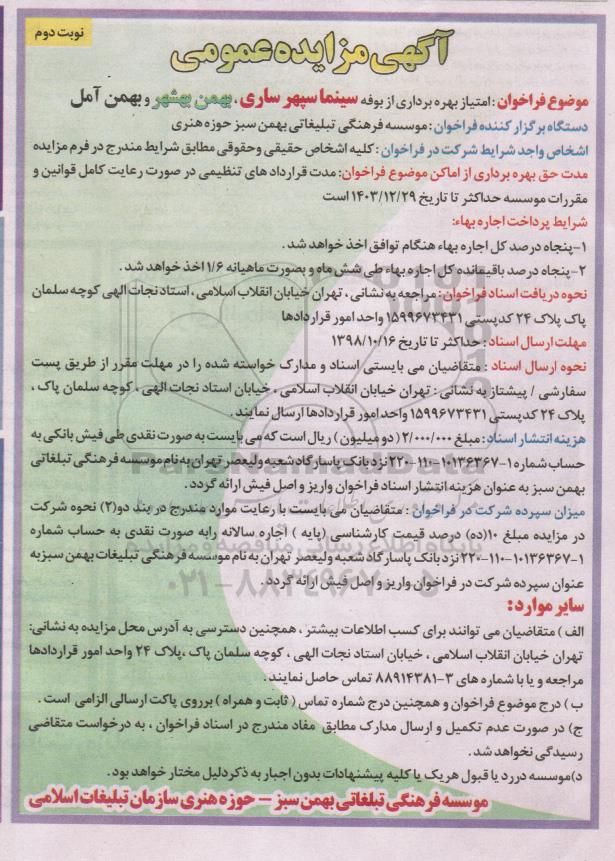 نوبت دوم
آگهی مزایده عمومی
موضوع فراخوان : امتیاز بهره برداری از بوفه سینما سپهر ساری ، بهمن بهشهر و بهمن آمل
دستگاه برگزار کننده فراخوان : موسسه فرهنگی تبلیغاتی بهمن سبز حوزه هنری
اشخاص واجد شرایط شرکت در فراخوان : کلیه اشخاص حقیقی وحقوقی مطابق شرایط مندرج در فرم مزایده
مدت حق بهره برداری از اماکن موضوع فراخوان: مدت قرارداد های تنظیمی در صورت رعایت کامل قوانین و
مقررات موسسه حداکثر تا تاریخ ۱۴۰۳/۱۲/۲۹ است
شرایط پرداخت اجاره بهاء:
۱-پنجاه درصد کل اجاره بهاء هنگام توافق اخذ خواهد شد .
۲- پنجاه درصد باقیمانده کل اجاره بهاء طی شش ماه و بصورت ماهیانه ۱/۶ اخذ خواهد شد .
نحوه دریافت اسناد فراخوان : مراجعه به نشانی ، تهران خیابان انقلاب اسلامی ، استاد نجات الهی کوچه سلمان
پاک پلاک ۲۴ کدپستی ۱۵۹۹۶۷۳۴۳۱ واحد امور قراردادها
مهلت ارسال اسناد : حداکثر تا تاریخ ۱۳۹۸/۱۰/۱۶
نحوه ارسال اسناد : متقاضیان می بایستی اسناد و مدارک خواسته شده را در مهلت مقرر از طریق پست
سفارشی / پیشتاز به نشانی : تهران خیابان انقلاب اسلامی ، خیابان استاد نجات الهی ، کوچه سلمان پاک ،
پلاک ۲۴ کدپستی ۱۵۹۹۶۷۳۴۳۱ واحد امور قراردادها ارسال نمایند .
هزینه انتشار اسناد: مبلغ ۲/۰۰۰/۰۰۰ ( دو میلیون ) ریال است که می بایست به صورت نقدی طی فیش بانکی به
حساب شماره ۱-۱۰۱۳۶۳۶۷-۱۱۰-۲۲۰ نزد بانک پاسارگاد شعبه ولیعصر تهران به نام موسسه فرهنگی تبلیغاتی
بهمن سبز به عنوان هزینه انتشار اسناد فراخوان واریز و اصل فیش ارائه گردد .
میزان سپرده شرکت در فراخوان : متقاضیان می بایست با رعایت موارد مندرج در بند دو(۲) نحوه شرکت
در مزایده مبلغ ۱۰(ده) درصد قیمت کارشناسی (پایه ) اجاره سالانه رابه صورت نقدی به حساب شماره
۱-۱۰۱۳۶۳۶۷-۱۱۰-۲۲۰ نزد بانک پاسارگاد شعبه ولیعصر تهران به نام موسسه فرهنگی تبلیغات بهمن سبز به
عنوان سپرده شرکت در فراخوان واریز و اصل فیش ارائه گردد .
۰۲۱-۸۸۳۴۹۶۷۰-۵
سایر موارد :
الف ) متقاضیان می توانند برای کسب اطلاعات بیشتر ، همچنین دسترسی به آدرس محل مزایده به نشانی:
تهران خیابان انقلاب اسلامی ، خیابان استاد نجات الهی ، کوچه سلمان پاک ،پلاک ۲۴ واحد امور قراردادها
مراجعه و یا با شماره های ۳-۸۸۹۱۴۳۸۱ تماس حاصل نمایند .
ب ) درج موضوع فراخوان و همچنین درج شماره تماس ( ثابت و همراه ) برروی پاکت ارسالی الزامی است .
ج) در صورت عدم تکمیل و ارسال مدارک مطابق مفاد مندرج در اسناد فراخوان ، به درخواست متقاضی
رسیدگی نخواهد شد.
د)موسسه دررد یا قبول هریک یا کلیه پیشنهادات بدون اجبار به ذکردلیل مختار خواهد بود.
موسسه فرهنگی تبلغاتی بهمن سبز - حوزه هنری سازمان تبلیغات اسلامی